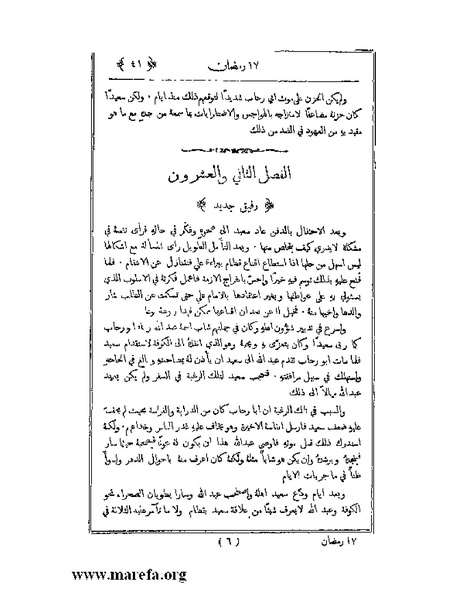 ١٧ رمضان ﴿ ٤١ ﴾
ولم يكن الحزن على موت ابي رحاب شديدًا لتوقعهم ذلك منذ ايام . ولكن سعيدًا
كان حزنه مضاعفًا لامتزاجه بالهواجس والاضطرابات بما سمعه من جده مع ما هو
مقيد به من العهود في الضد من ذلك
الفصل الثاني والعشرون
﴿ رفيق جديد ﴾
وبعد الاحتفال بالدفن عاد سعيد الى وفكر في حاله فرأى نفسه في
مشكلة لا يدري كيف يتخلص منها . وبعد التأمل الطويل رأى المسألة مع اشكالها
ليس اسهل من حلها اذا استطاع اقناع قطام ببراءة علي فتتنازل عن الانتقام . فلما
فتح عليه بذلك توسم فيه خيرًا واحس بانفراج الازمة فاعمل فكرته في الاسلوب الذي
يستولي به على عواطفها ويغير اعتقادها بالامام علي حتى تسكت عن الطلب بثار
والدها واخيها منه . فخيل له عن بعد ان اقناعها ممكن
واسرع في تدبير شؤون اهله وكان في جملتهم شاب اسمه عبد الله ابو رحاب
سعيدًا وكان يتعزى به ويحبه وهو الذي انفذه الى الكوفة لاستقدام سعيد
فلما مات ابو رحاب تقدم عبد الله الى سعيد ان يأذن له بمصاحبته وبالغ في الحاحه
واستهلك في سبيل مرافقته . فعجب سعيد لتلك الرغبة في السفر ولم يكن يعهد
عبد الله ميالًا الى ذلك
والسبب في تلك الرغبة ان ابا رحاب كان من الدراية والفراسة بحيث لم يخف
عليه ضعف سعيد فارسل انفاسه الاخيرة وهو يخاف عليه غدر الناس وخداعهم . ولكنه
استدرك ذلك قبل موته فاوصى عبد الله هذا ان يكون له عونًا فيصحبه حيثما سار
وينجده ويرشده وان يكن هو شابًا مثله ولكنه كان اعرف منه باحوال الدهر
في ماجريات الايام
وبعد ايام ودع سعيد اهله واصطحب عبد الله وسارا يطويان الصحراء نحو
الكوفة وعبد الله لا يعرف شيئًا من علاقة سعيد بقطام ولا ما تآمر عليه الثلاثة في
١٧ رمضان ( ٦ )
www.marefa.org